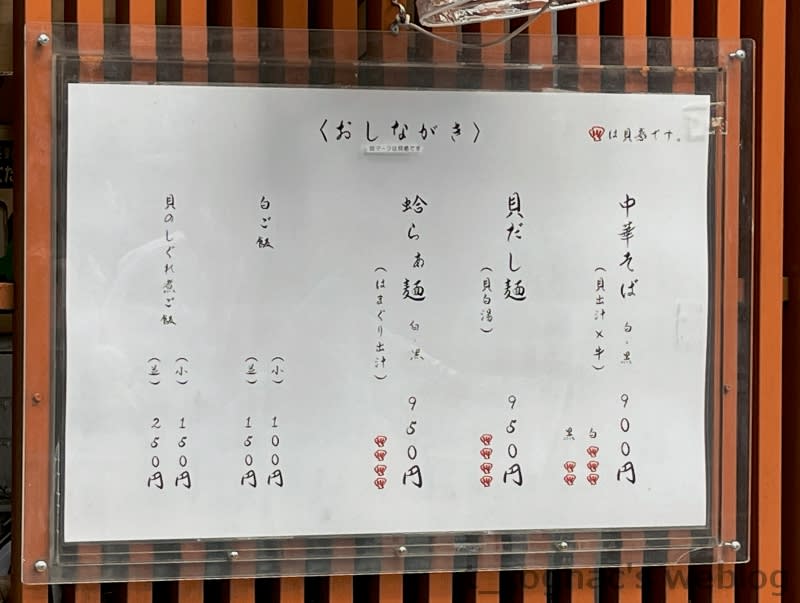 〈おしながき〉
貝マークは貝感です
は貝感です。
中華そば 白・黒
(貝出汁×牛)
900円
白
黒
貝だし麺
(貝白湯)
950円
蛤らぁ麺 白・黒
(はまぐり出汁)
950円
白ご飯
(小) 100円
(並) 150円
貝のしぐれ煮ご飯
(小) 150円
(並) 250円
's weblog